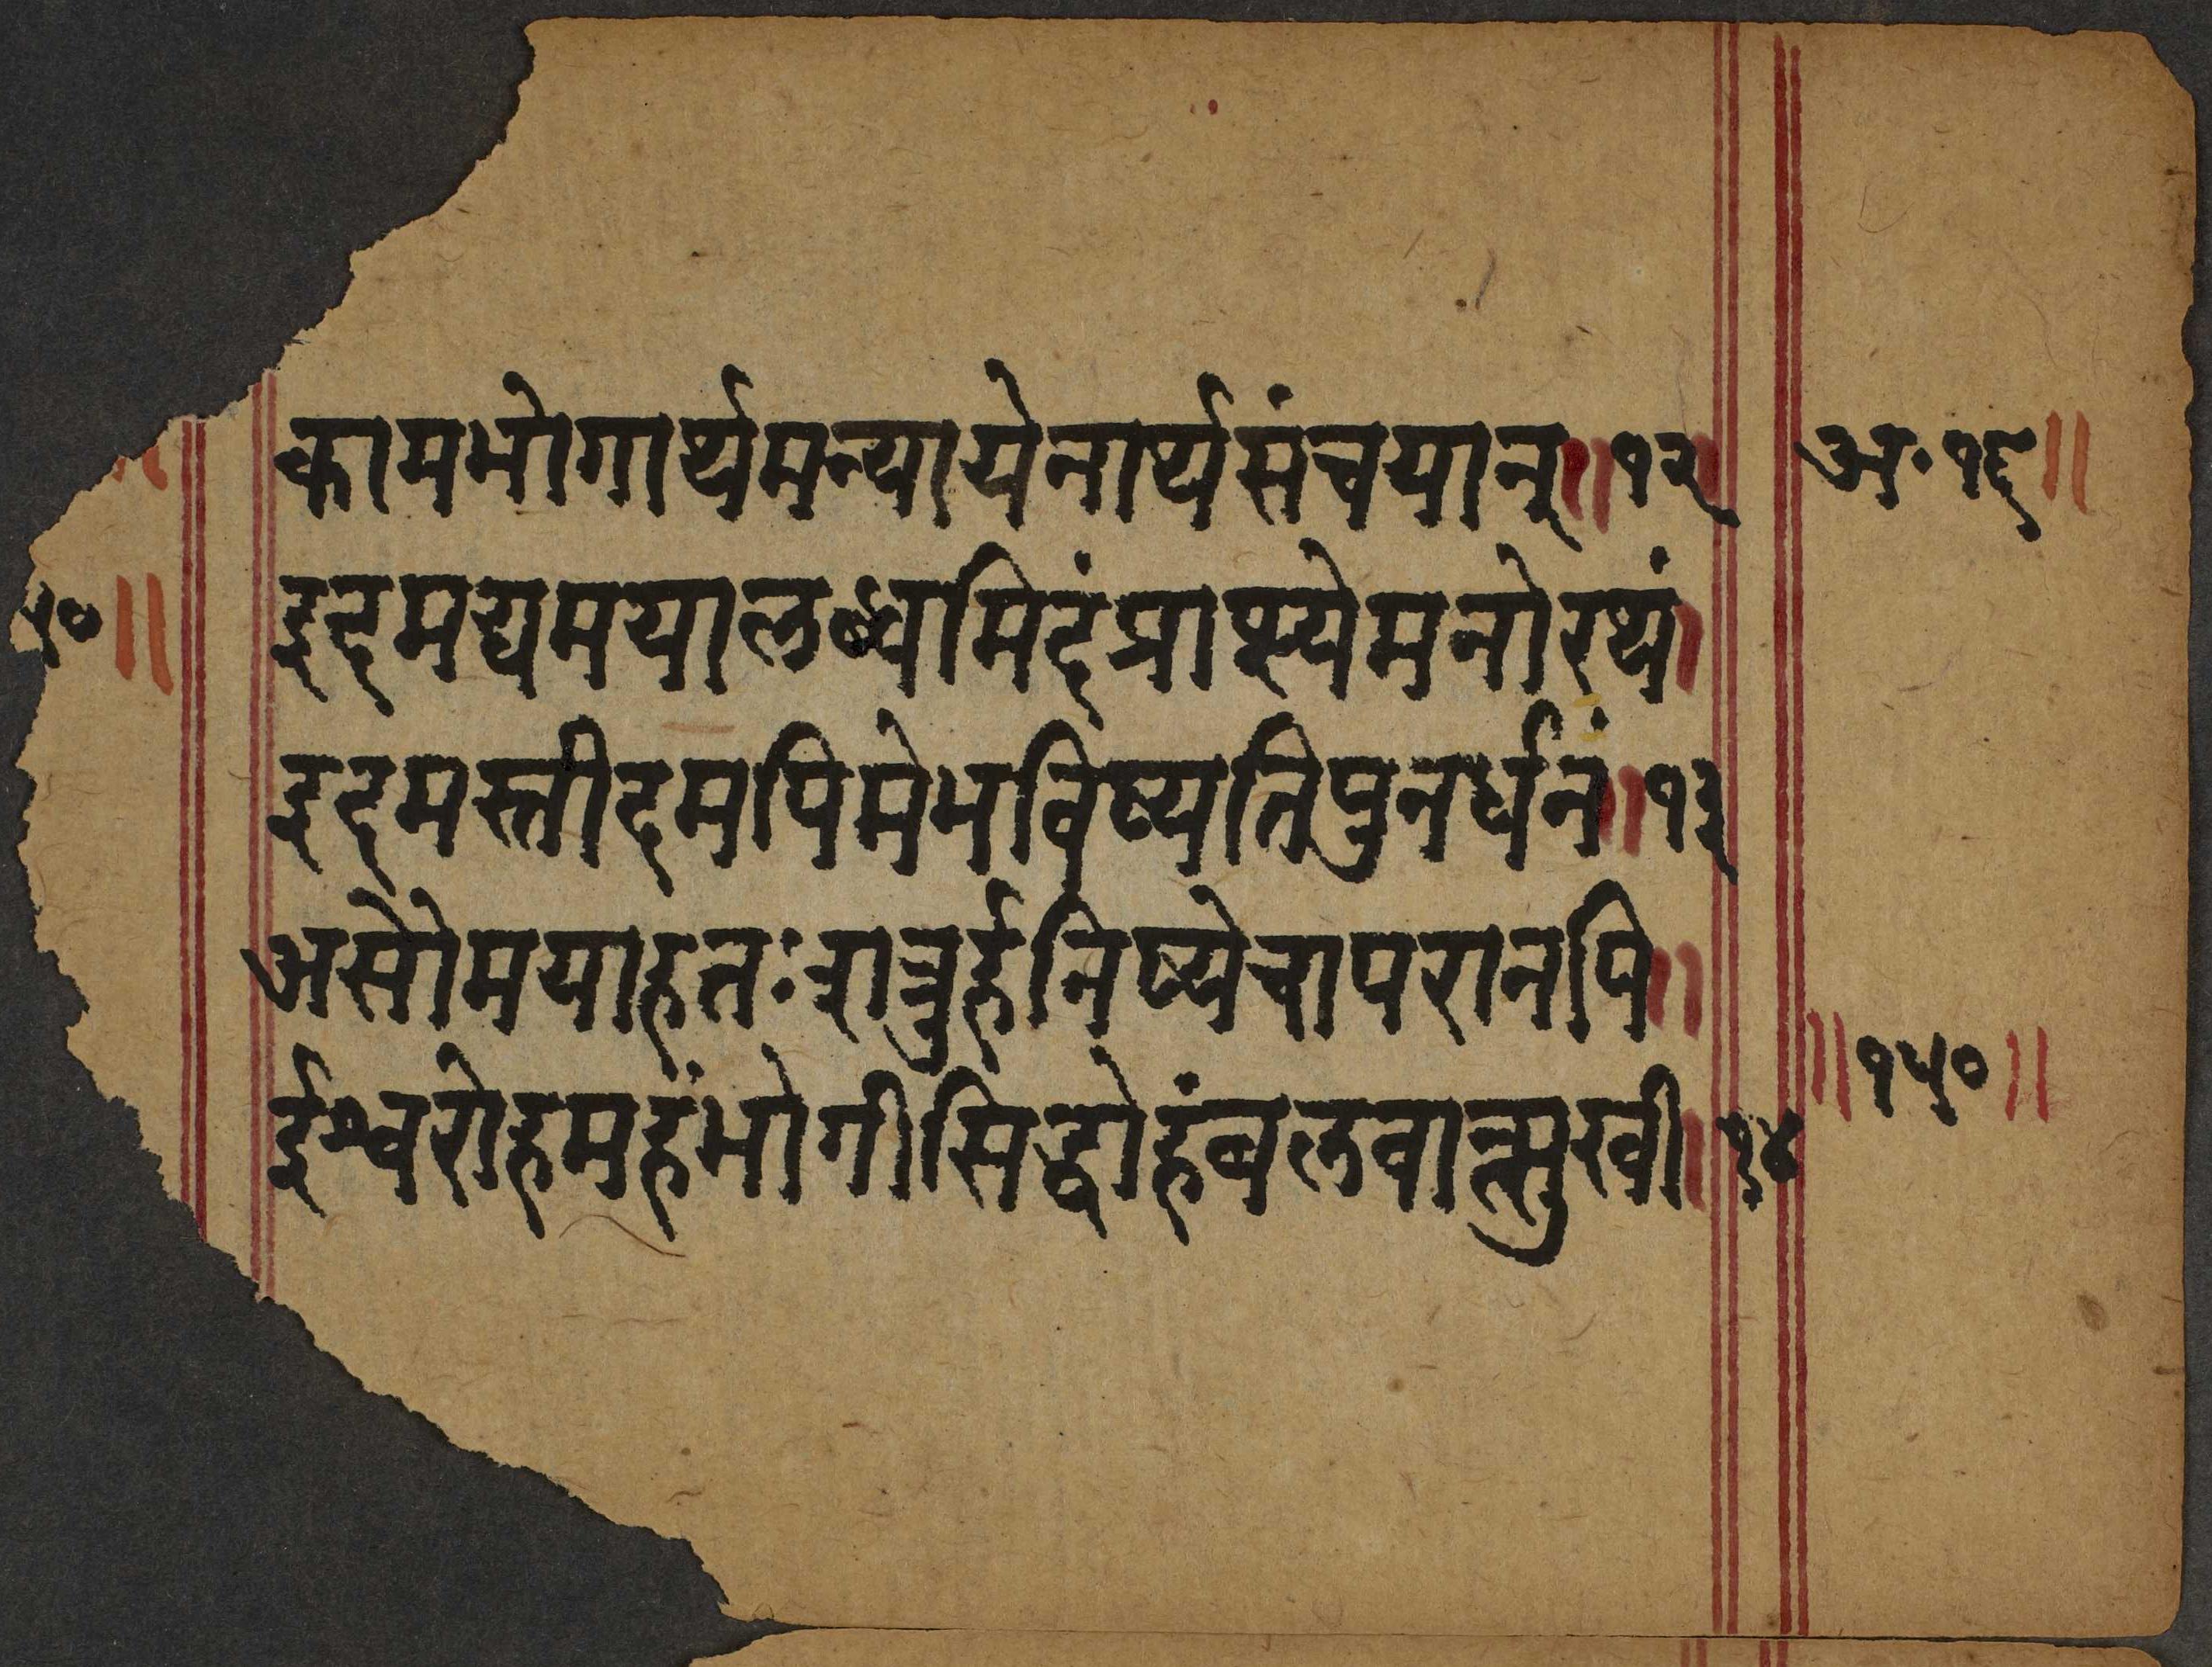 कामभोगार्थमन्यायेनार्थसंचयान्॥१२
अ॰१६॥
५०॥
इदमद्यमयालब्धमिदंप्राप्स्येमनोरथं।
इदमस्तीदमपिमेभविष्यतिपुनर्धनं॥१३
असौमयाहतःशत्रुर्हनिष्येचापरानपि॥
ईश्वरोहमहंभोगीसिद्धोहंबलवान्सुखी।१४
॥१५०॥